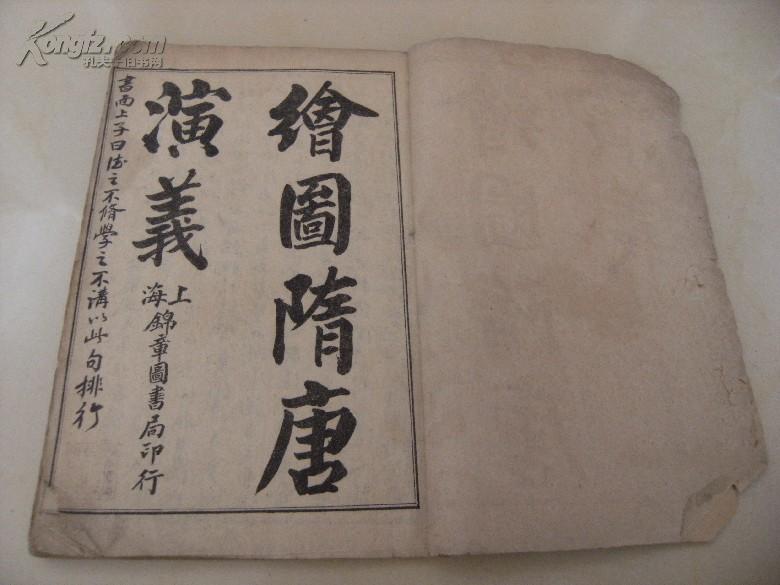 繪圖隋唐
演義
上海錦章圖書局印行
書面上子曰德之不脩學之不講以此句排行
Kongfz.com
孔夫子旧书网